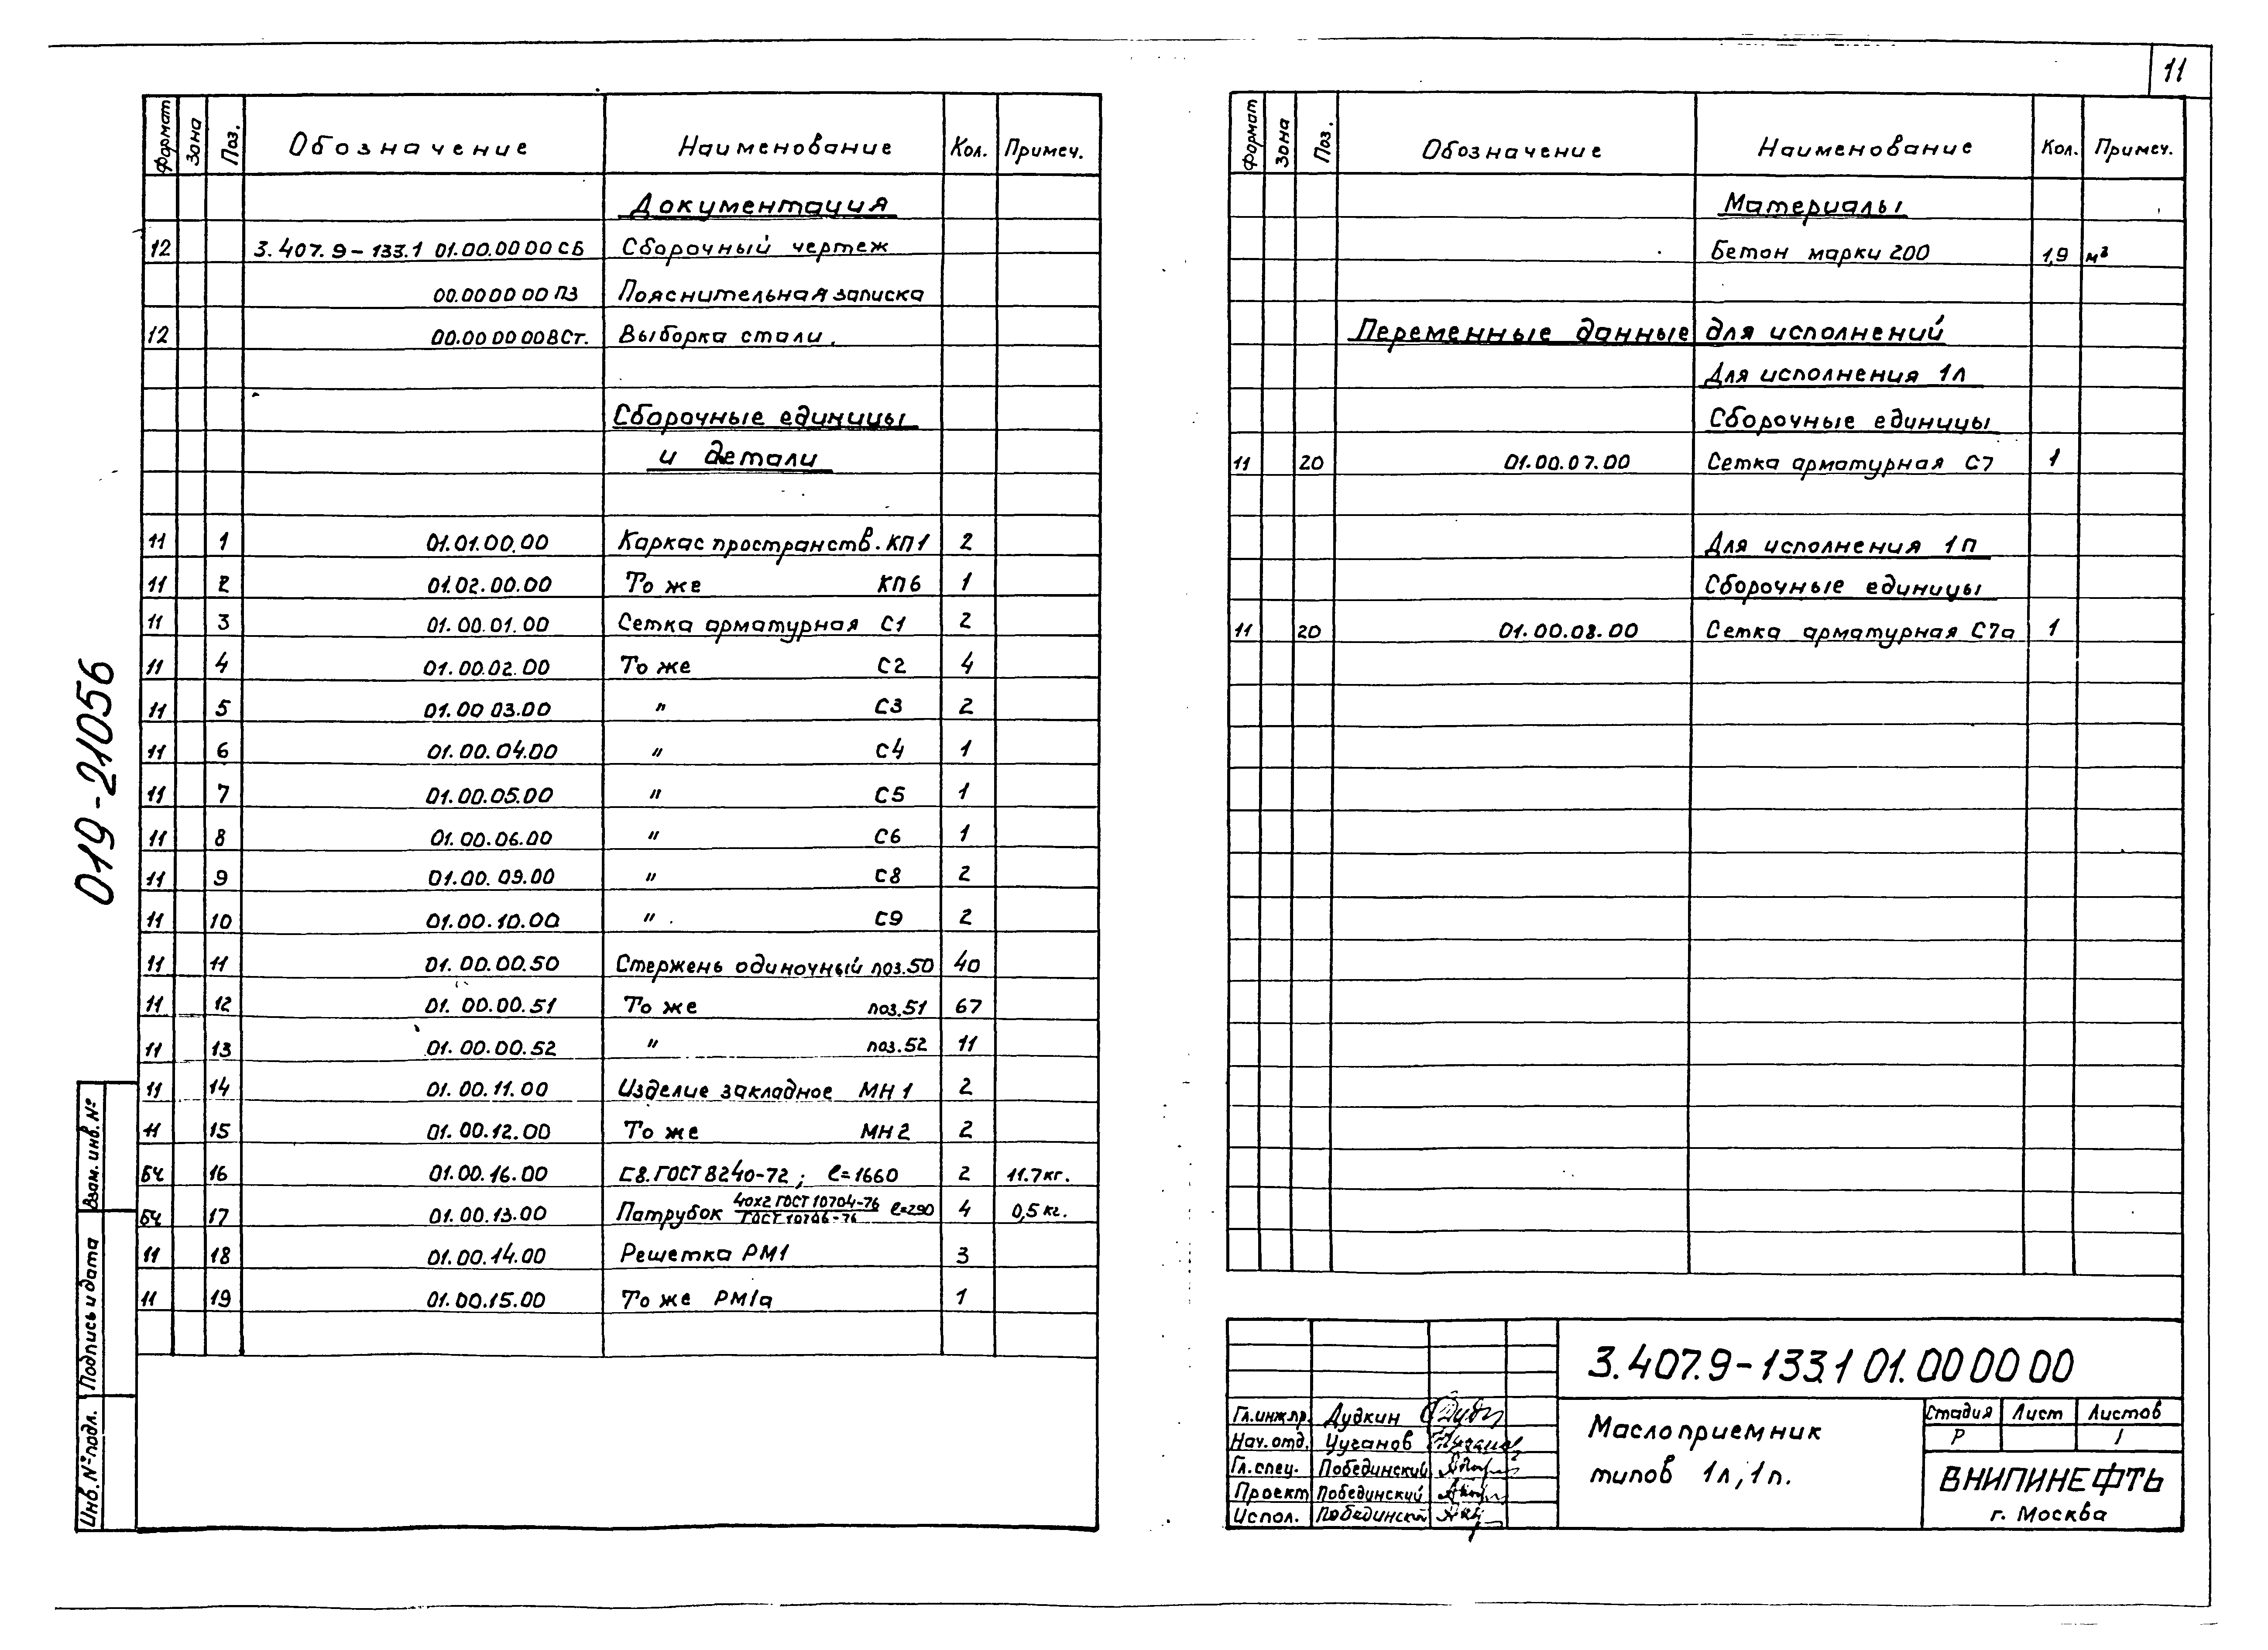 11
Формат Зона Поз. Обозначение Наименование Кол. Примеч.
Документация
12 3.407.9-133.1 01.00.00 00 СБ Сборочный чертеж
00.00 00 00 ПЗ Пояснительная записка
12 00.00 00 00 ВСт. Выборка стали.
Сборочные единицы
и детали
11 1 01.01.00.00 Каркас пространств. КП1 2
11 2 01.02.00.00 То же КП6 1
11 3 01.00.01.00 Сетка арматурная С1 2
11 4 01.00.02.00 То же С2 4
11 5 01.00 03.00 " С3 2
11 6 01.00.04.00 " С4 1
11 7 01.00.05.00 " С5 1
11 8 01.00.06.00 " С6 1
11 9 01.00.09.00 " С8 2
11 10 01.00.10.00 " С9 2
11 11 01.00.00.50 Стержень одиночный поз.50 40
11 12 01.00.00.51 То же поз.51 67
11 13 01.00.00.52 " поз.52 11
11 14 01.00.11.00 Изделие закладное МН1 2
11 15 01.00.12.00 То же МН2 2
БЧ 16 01.00.16.00 С8.ГОСТ 8240-72; ℓ=1660 2 11.7кг.
БЧ 17 01.00.13.00 Патрубок 40х2 ГОСТ 10704-76 ГОСТ 10706-76 ℓ=290 4 0,5кг.
11 18 01.00.14.00 Решетка РМ1 3
11 19 01.00.15.00 То же РМ1а 1
019-21056
Взам. инв. №
Подпись и дата
Инв. № подл.
Формат Зона Поз. Обозначение Наименование Кол. Примеч.
Материалы
Бетон марки 200 1,9 м³
Переменные данные для исполнений
Для исполнения 1л
Сборочные единицы
11 20 01.00.07.00 Сетка арматурная С7 1
Для исполнения 1п
Сборочные единицы
11 20 01.00.08.00 Сетка арматурная С7а 1
3.407.9-133.1 01.00 00 00
Гл.инж.пр. Дудкин
Нач.отд. Чуганов
Гл.спец. Побединский
Проект Побединский
Испол. Побединский
Маслоприемник
типов 1л, 1п.
Стадия Лист Листов
Р 1
ВНИПИНЕФТЬ
г. Москва